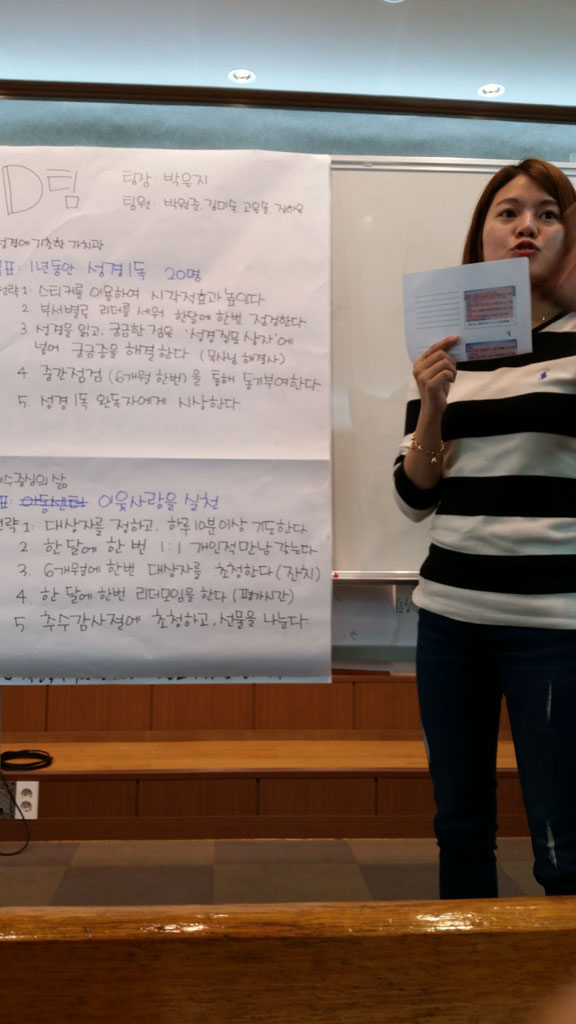 D팀
팀장: 박은지
팀원: 박원준, 김미숙, 고은솔,
성경에 기초한 가치관
목표: 1년동안 성경1독 20명
전략 1. 스티커를 이용하여 시각적효과 높인다
2. 부서별로 리더를 세워 한달에 한번 점검한다
3. 성경을 읽고, 궁금한 점은 '성경질문 상자'에
넣어 궁금증을 해결한다 (목사님 해결사)
4. 중간점검 (6개월 한번)을 통해 동기부여한다
5. 성경1독 완독자에게 시상한다.
예수중심의 삶
표: 이웃사랑을 실천
전략 1: 대상자를 정하고, 하루 10분이상 기도한다
2. 한달에 한 번 1:1 개인적만남 갖는다
3. 6개월에 한번 대상자를 초청한다 (잔치)
4. 한 달에 한번 리더모임을 한다 (평가시간)
5. 추수감사절에 초청하고, 선물을 나눈다